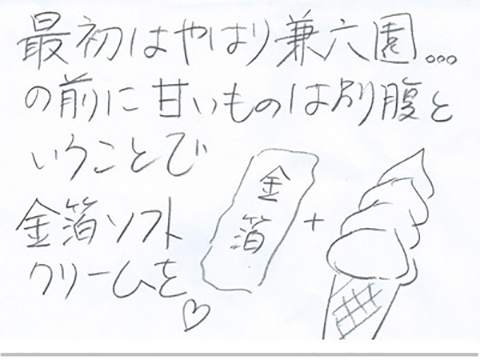 最初はやはり兼六園...
の前に甘いものは別腹と
いうことで
金箔ソフト
クリームを♡
金箔
+